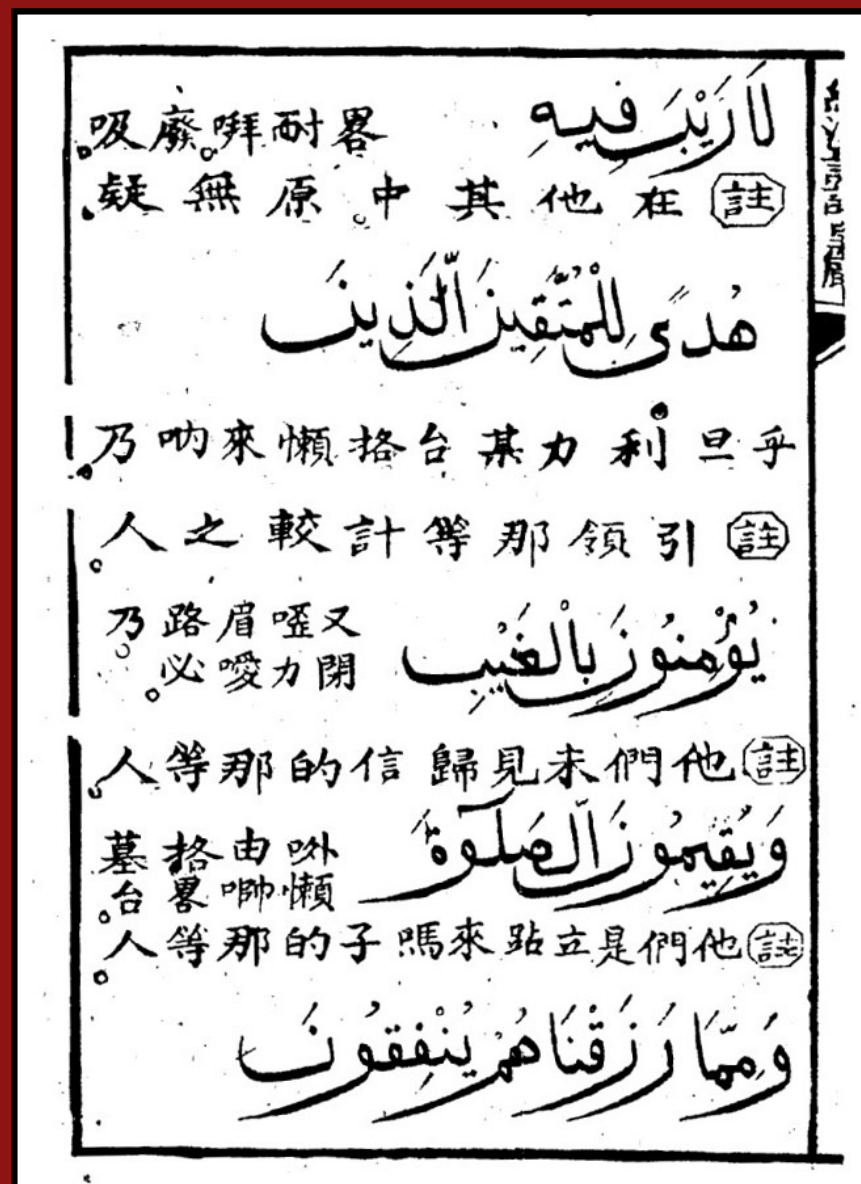 لَا رَيْبَ فِيهِ 畧耐 廢吸。
註 在他其中。原無疑。
هُدًى لِلْمُتَّقِينَ الَّذِينَ
乎旦利力某台挌懶來吶乃。
註 引領那等計較之人。
يُؤْمِنُونَ بِالْغَيْبِ 又啞眉路乃。
閉力噯必。
註 他們未見歸信的那等人。
وَيُقِيمُونَ الصَّلَوٰةَ 由挌墓
懶 畧台。
註 他們是立跕來嗎子的那等人。
وَمِمَّا رَزَقْنَاهُمْ يُنْفِقُونَ